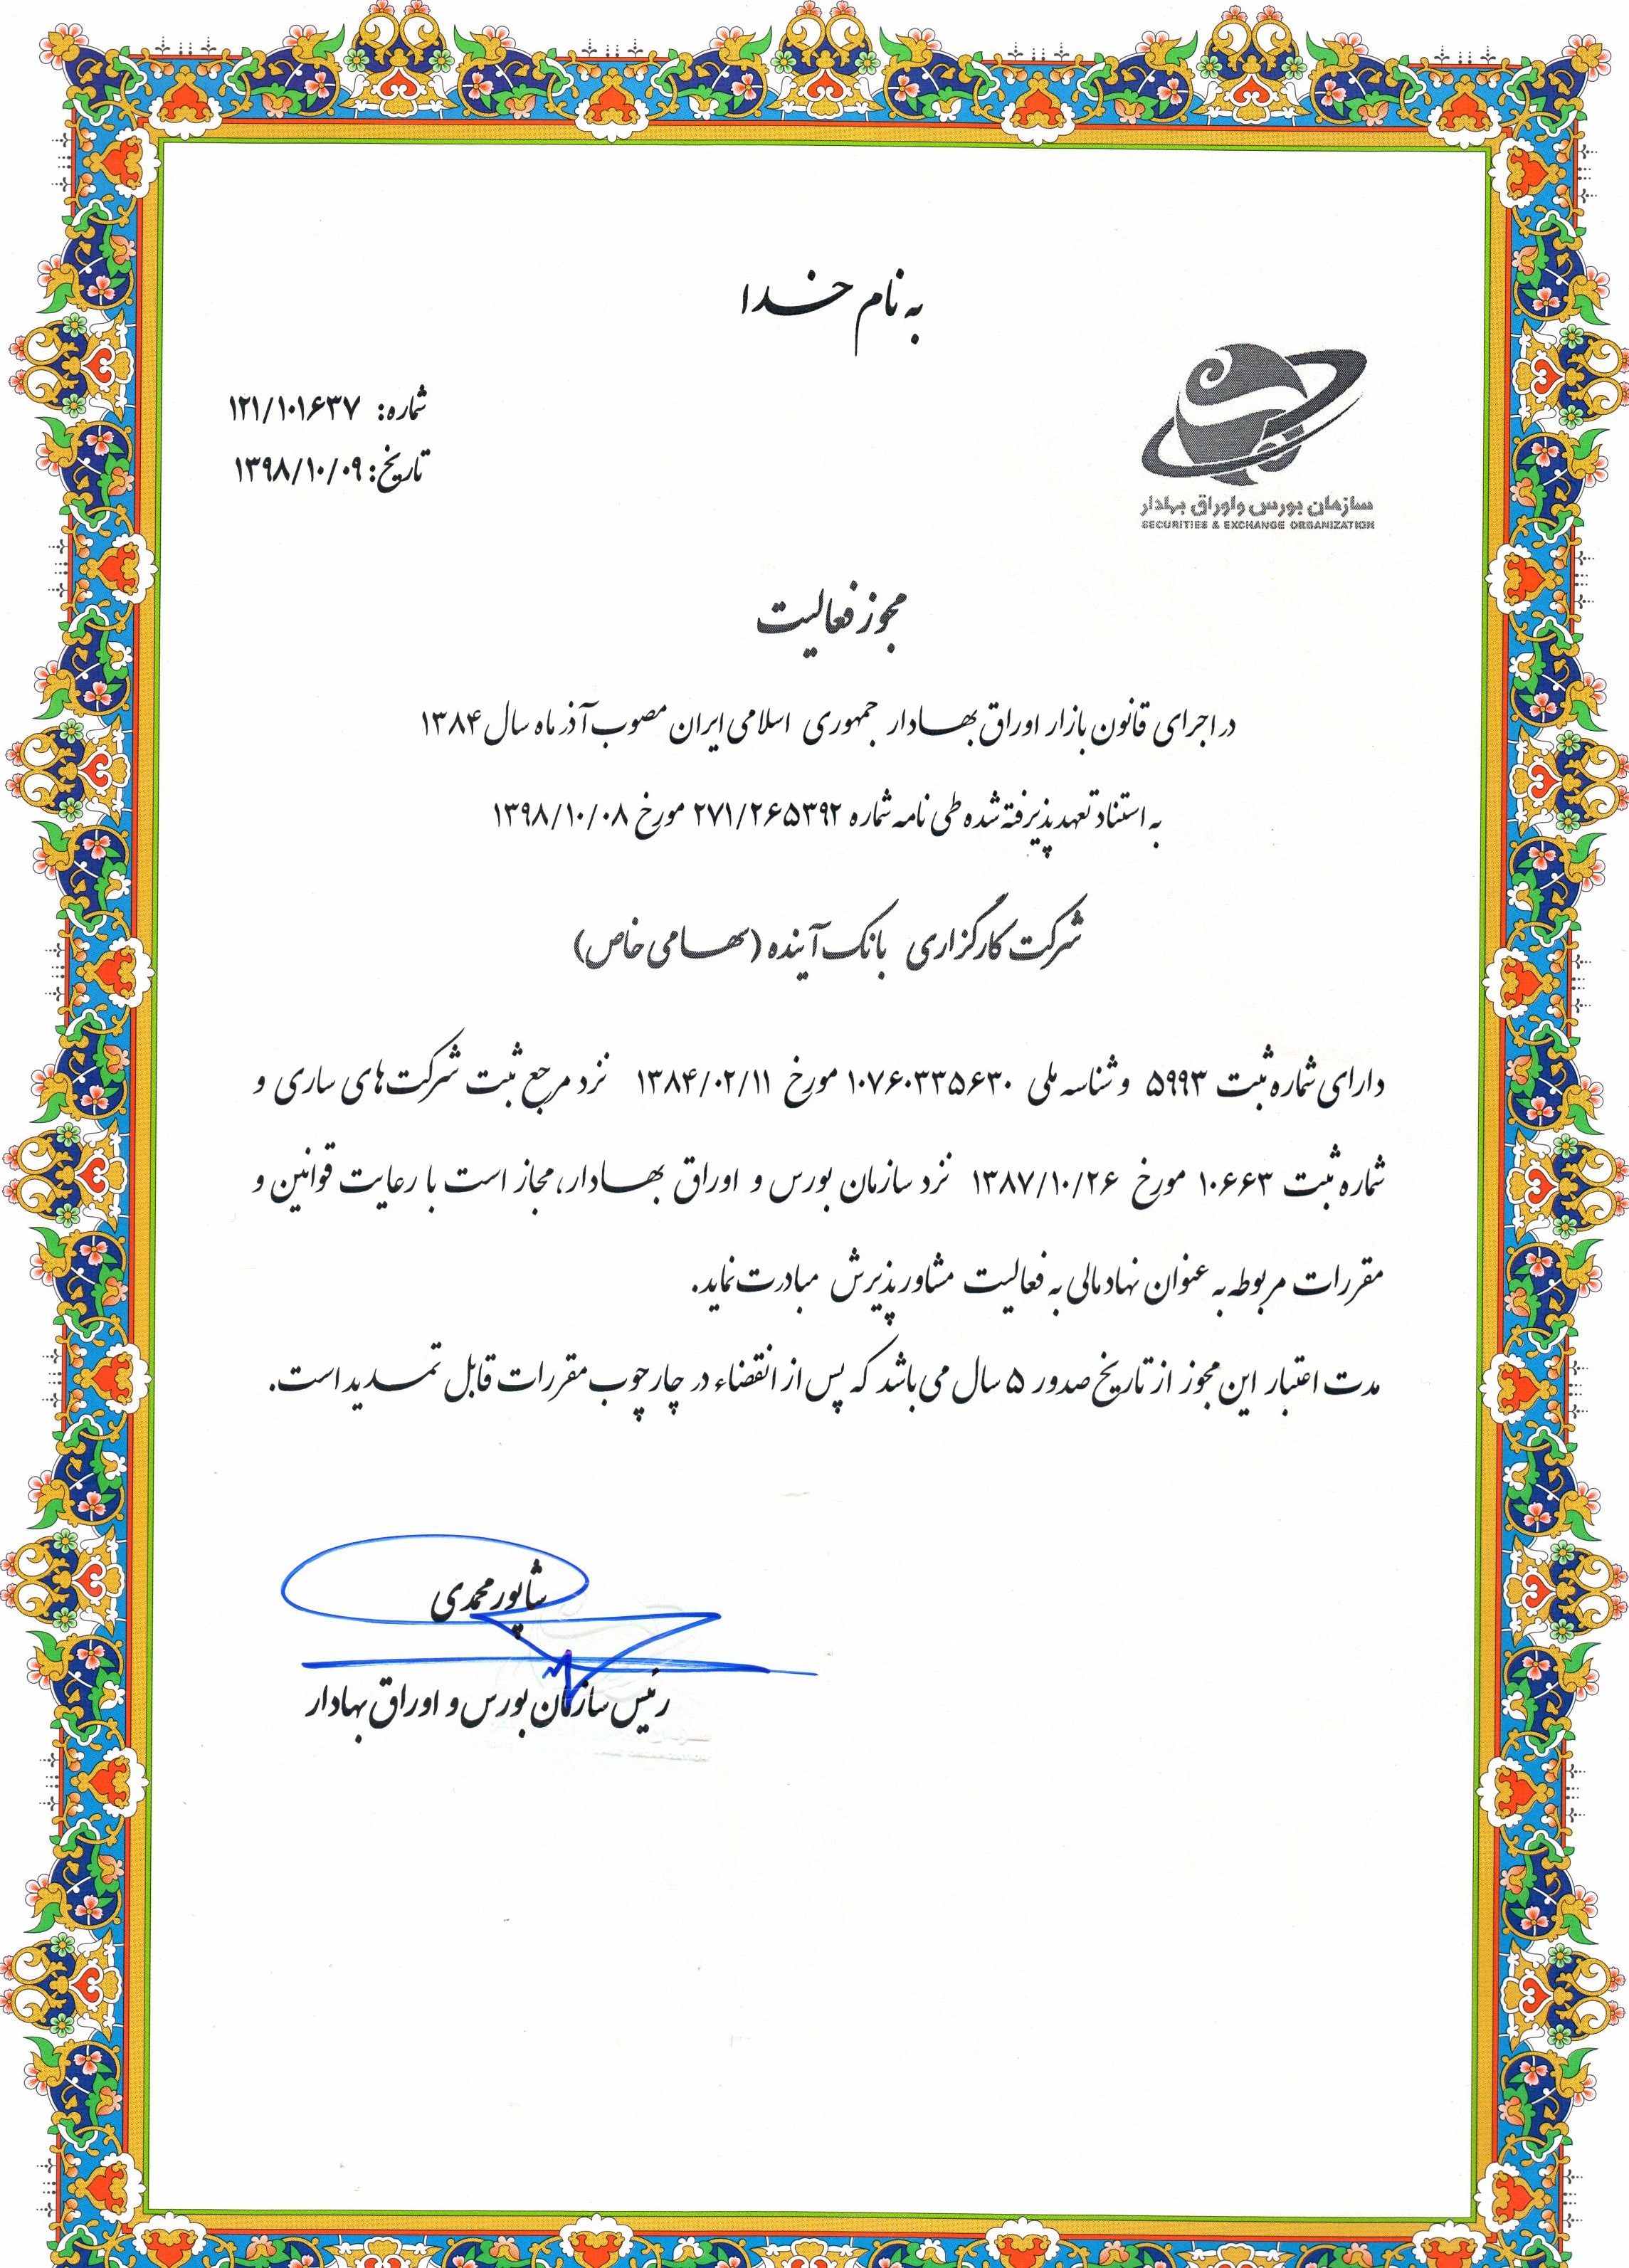 به نام خدا
شماره: ۱۲۱/۱۰۱۶۳۷
تاریخ: ۱۳۹۸/۱۰/۰۹
سازمان بورس و اوراق بهادار
SECURITIES & EXCHANGE ORGANIZATION
مجوز فعالیت
در اجرای قانون بازار اوراق بهادار جمهوری اسلامی ایران مصوب آذر ماه سال ۱۳۸۴
به استناد تعهد پذیرفته شده طی نامه شماره ۲۷۱/۲۶۵۳۹۲ مورخ ۱۳۹۸/۱۰/۰۸
شرکت کارگزاری بانک آینده (سهامی خاص)
دارای شماره ثبت ۵۹۹۳ و شناسه ملی ۱۰۷۶۰۳۳۵۶۳۰ مورخ ۱۳۸۴/۰۲/۱۱ نزد مرجع ثبت شرکت‌های ساری و
شماره ثبت ۱۰۶۶۳ مورخ ۱۳۸۷/۱۰/۲۶ نزد سازمان بورس و اوراق بهادار، مجاز است با رعایت قوانین و
مقررات مربوطه به عنوان نهاد مالی به فعالیت مشاور پذیرش مبادرت نماید.
مدت اعتبار این مجوز از تاریخ صدور ۵ سال می باشد که پس از انقضاء در چارچوب مقررات قابل تمدید است.
شاپور محمدی
رئیس سازمان بورس و اوراق بهادار